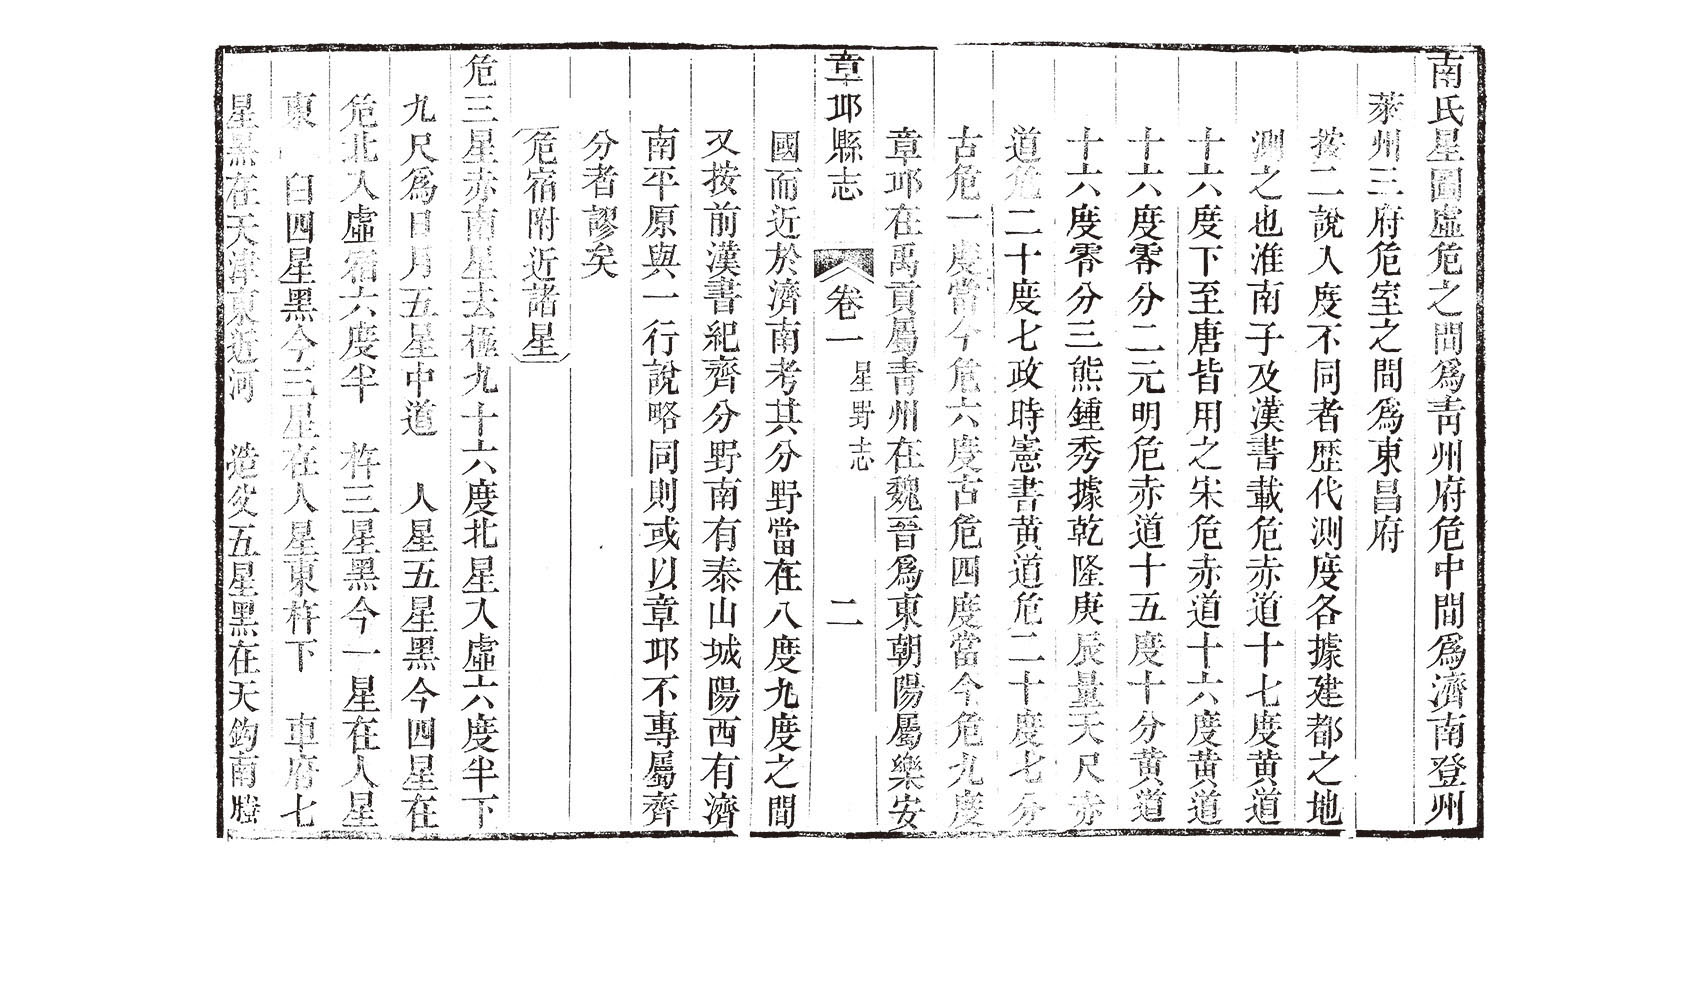 南氏星圖虛危之間爲青州府危中間爲濟南登州
萊州三府危室之間爲東昌府
按二說入度不同者歷代測度各據建都之地
測之也淮南子及漢書載危赤道十七度黃道
十六度下至唐皆用之宋危赤道十六度黃道
十六度零分二元明危赤道十五度十分黃道
十六度零分三熊鍾秀據乾隆庚辰量天尺赤
道危二十度七政時憲書黃道危二十度七分
古危一度當今危六度古危四度當今危九度
章邱在禹貢屬青州在魏晉爲東朝陽屬樂安
章邱縣志
卷一
星野志
二
國而近於濟南考其分野當在八度九度之間
又按前漢書紀齊分野南有泰山城陽西有濟
南平原與一行說略同則或以章邱不專屬齊
分者謬矣
危宿附近諸星
危三星赤南星去極九十六度北星入虛六度半下
九尺爲日月五星中道 人星五星黑今四星在
危北入虛宿六度半 杵三星黑今一星在人星
東 臼四星黑今三星在人星東杵下 車府七
星黑在天津東近河 造父五星黑在天鈎南螣